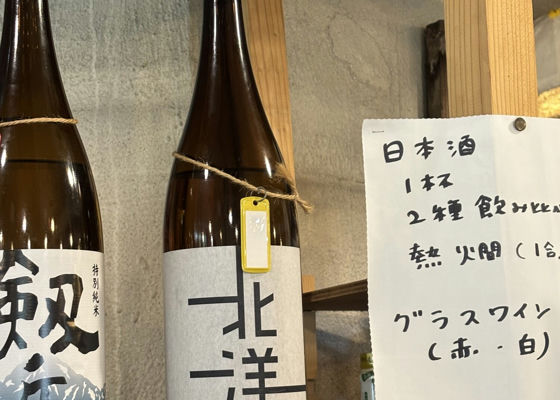 特別純米
剱
北洋
日本酒
1杯
2種 飲み
熱燗(1合
グラスワイン
(赤・白)